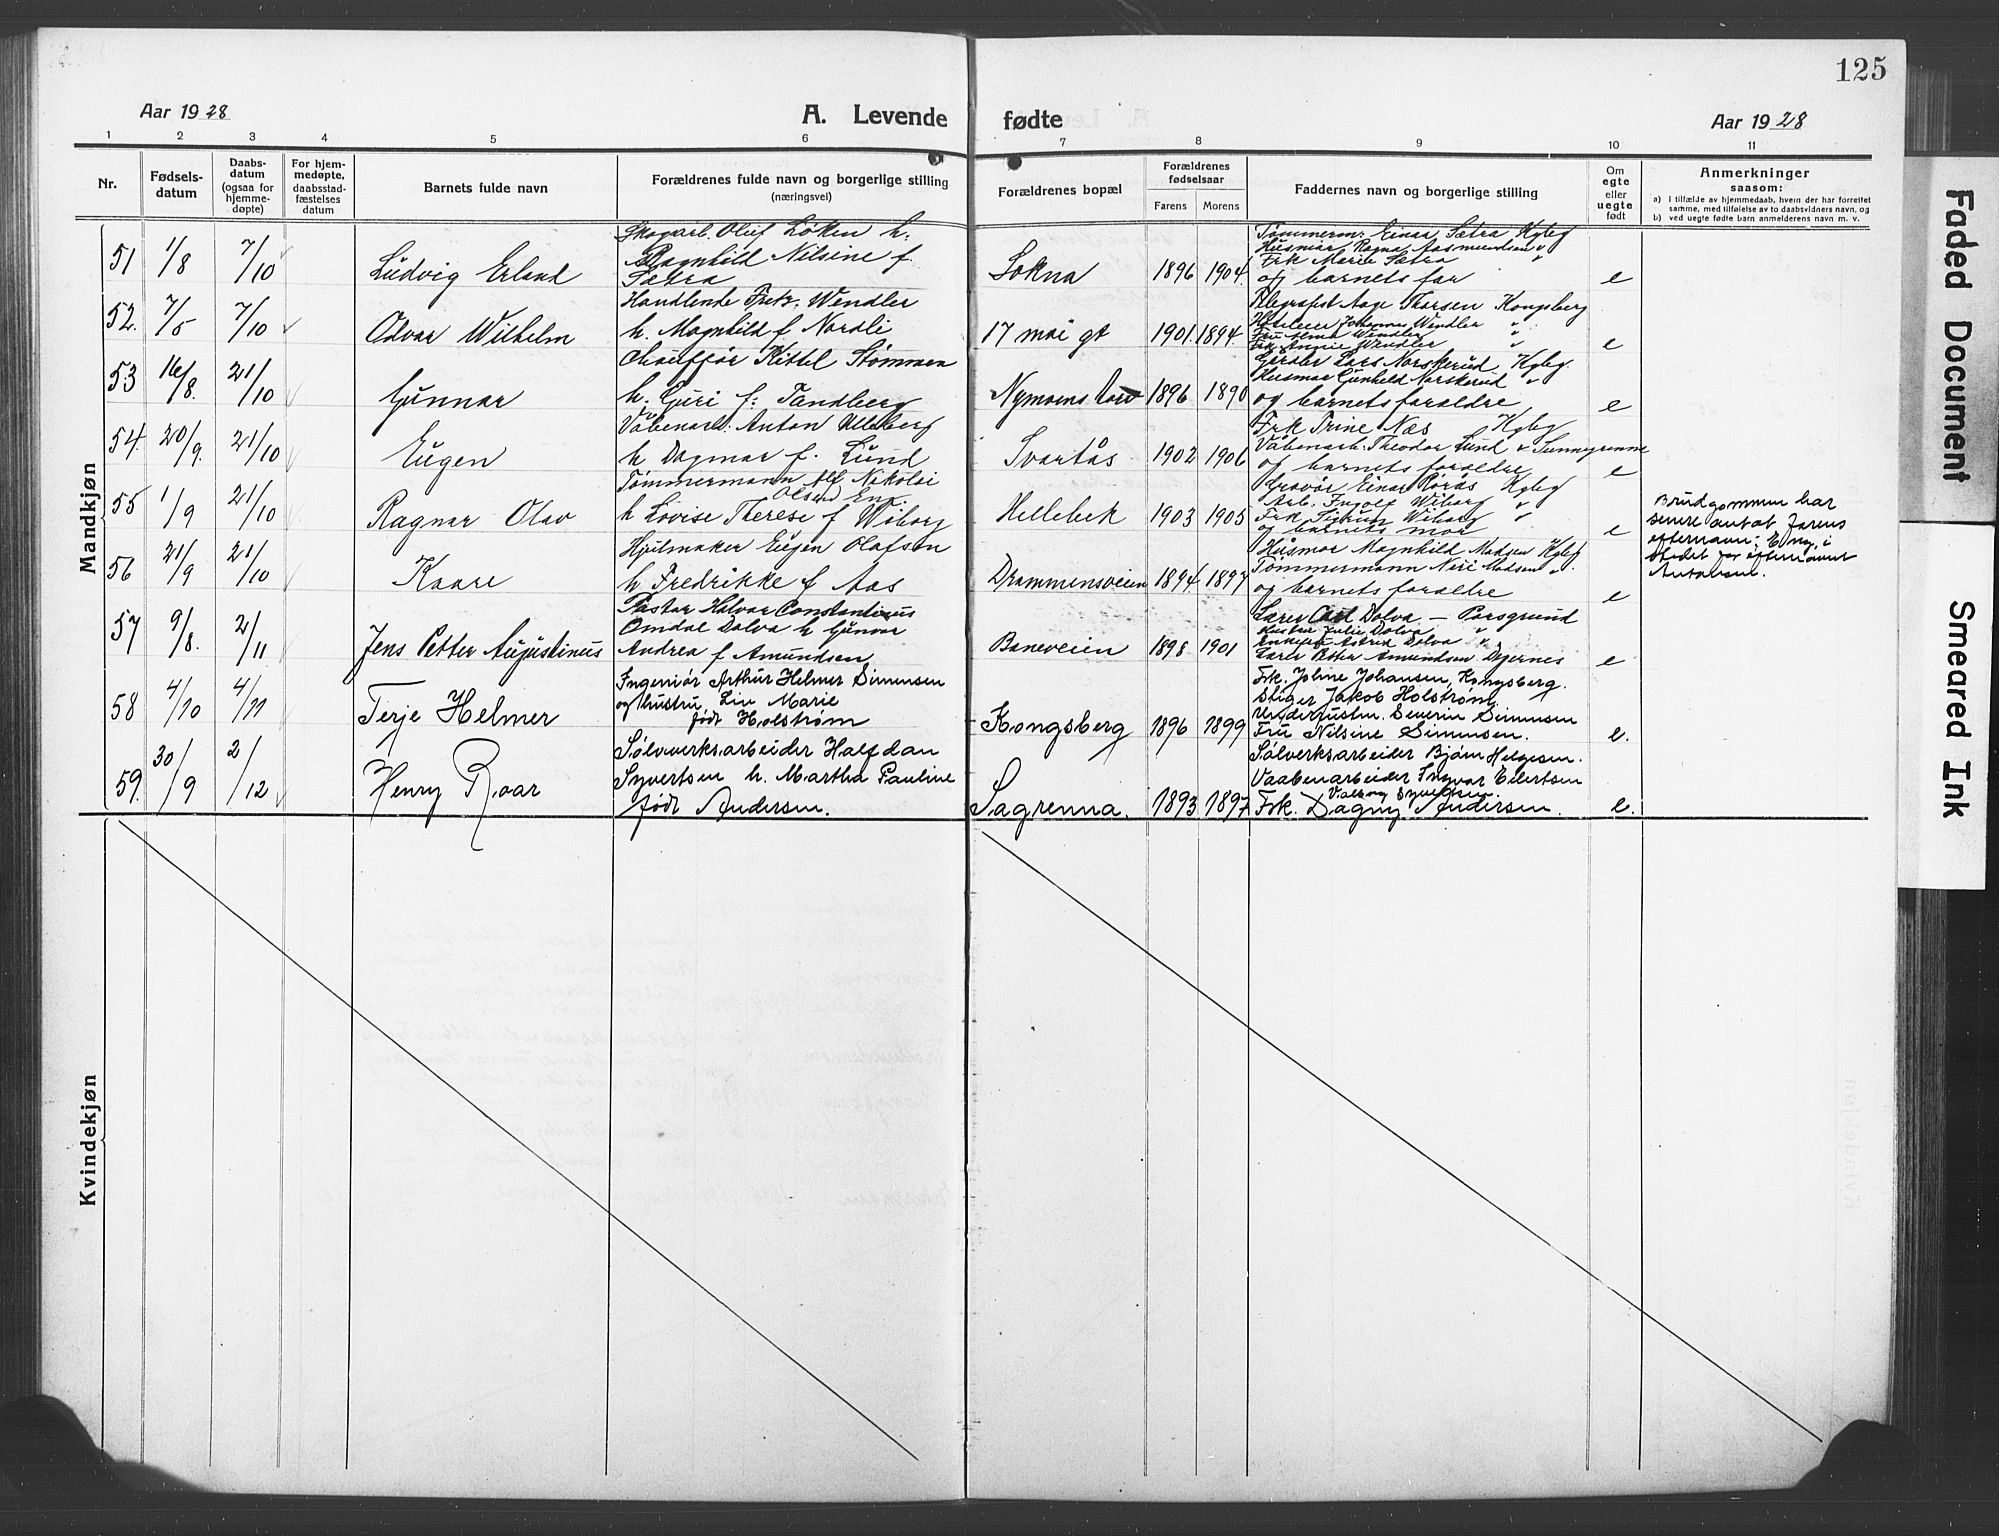 125
Aar 1928
A. Levende
fødte
Aar 1928
1 2 3 4 5 6 7 8 9 10 11
Nr.
Fødsels-
datum
Daabs-
datum
(ogsaa for
hjemme-
døpte)
For hjem-
medøpte,
daabsstad-
fæstelses
datum
Barnets fulde navn
Forældrenes fulde navn og borgerlige stilling
(næringsvei)
Forældrenes bopæl
Forældrenes
fødselsaar
Farens Morens
Faddernes navn og borgerlige stilling
Om
egte
eller
uegte
født
Anmerkninger
saasom:
a) i tilfælde av hjemmedaab, hvem der har forrettet
samme, med tilføielse av to daabsvidners navn, og
b) ved uegte fødte barn anmelderens navn m. v.
Mandkjøn
51 1/8 7/10 Ludvig Erland
Skogarb. Oluf Løken h.
Ragnhild Nilsine f.
Sætra
Sokna 1896 1904
Tømmerm. Einar Sætra Kgbg
Husmor Ragna Aasmundsen "
Frk Marie Sætra "
og barnets far
e
52. 7/5 7/10 Odvar Wilhelm
Handlende Fritz Wendler
h. Magnhild f Nordli
17 mai gt 1901 1894
Telegrafist Aage Thorsen Kongsberg
Johannes Wendler "
Fru Alma Wendler
Frk Annie Wendler "
e
53 16/8. 21/10 Gunnar
Chauffør Kittel Strømmen
h. Guri f: Tandberg
Nymoens torv 1896 1890
Lars Norskerud Kgbg.
Husmor Gunhild Norskerud "
og barnets foraldre
e
54. 20/9. 21/10 Eugen
Våbenarb. Anton Ulleberg
h Dagmar f. Lund
Svartås 1902 1906
Frk Trine Næs Kgbg
Våbenarb. Theodor Lund Sunnygrenne
og barnets foraldre
e
55 1/9 21/10 Ragnar Olav
Tømmermann Alf Nikolai
Olsen Eng.
h Lovise Therese f Wiborg
Hellebek 1903 1905
Gravør Einar Rørås Kgbg
Arb. Ingolf Wiborg "
Frk Sigrun Wiborg "
og barnets mor
e
Brudgommen har
senere antat farens
efternavn: Eng, i
stedet for efternavnet
56 21/9 21/10 Kaare
Hjulmaker Eugen Olafsen
h Fredrikke f Aas
Drammensveien 1894 1897
Husmor Magnhild Madsen Kgbg
Tømmermann Neri Madsen "
og barnets foraldre
e
57 9/8. 2/11 Jens Petter Augustinus
Pastor Halvar Constantinus
Omdal Dolva h Gunvor
Andrea f Amundsen
Baneveien 1898 1901
Lærer Carl Dolva — Porsgrund
Hustru Julie Dolva
Astrid Dolva "
Lærer Petter Amundsen Degernes
e
58 4/10 4/11 Terje Helmer
Ingeniør Arthur Helmer Simensen
og hustru, Liv Marie
født Holstrøm
Kongsberg 1896 1899
Frk. Joline Johansen, Kongsberg.
Stiger Jakob Holstrøm,
Severin Simensen
Fru Nilsine Simensen.
e.
59. 30/9 2/12 Henry Roar
Sølvverksarbeider Halfdan
Syvertsen h. Martha Pauline
født Andersen.
Sagrenna. 1893 1897
Sølverksarbeider Bjørn Helgesen.
Vaabenarbeider Ingvar Eilertsen
Valborg Syvertsen
Frk. Dagny Andersen.
e.
Kvindekjøn
Faded Document
Smeared Ink